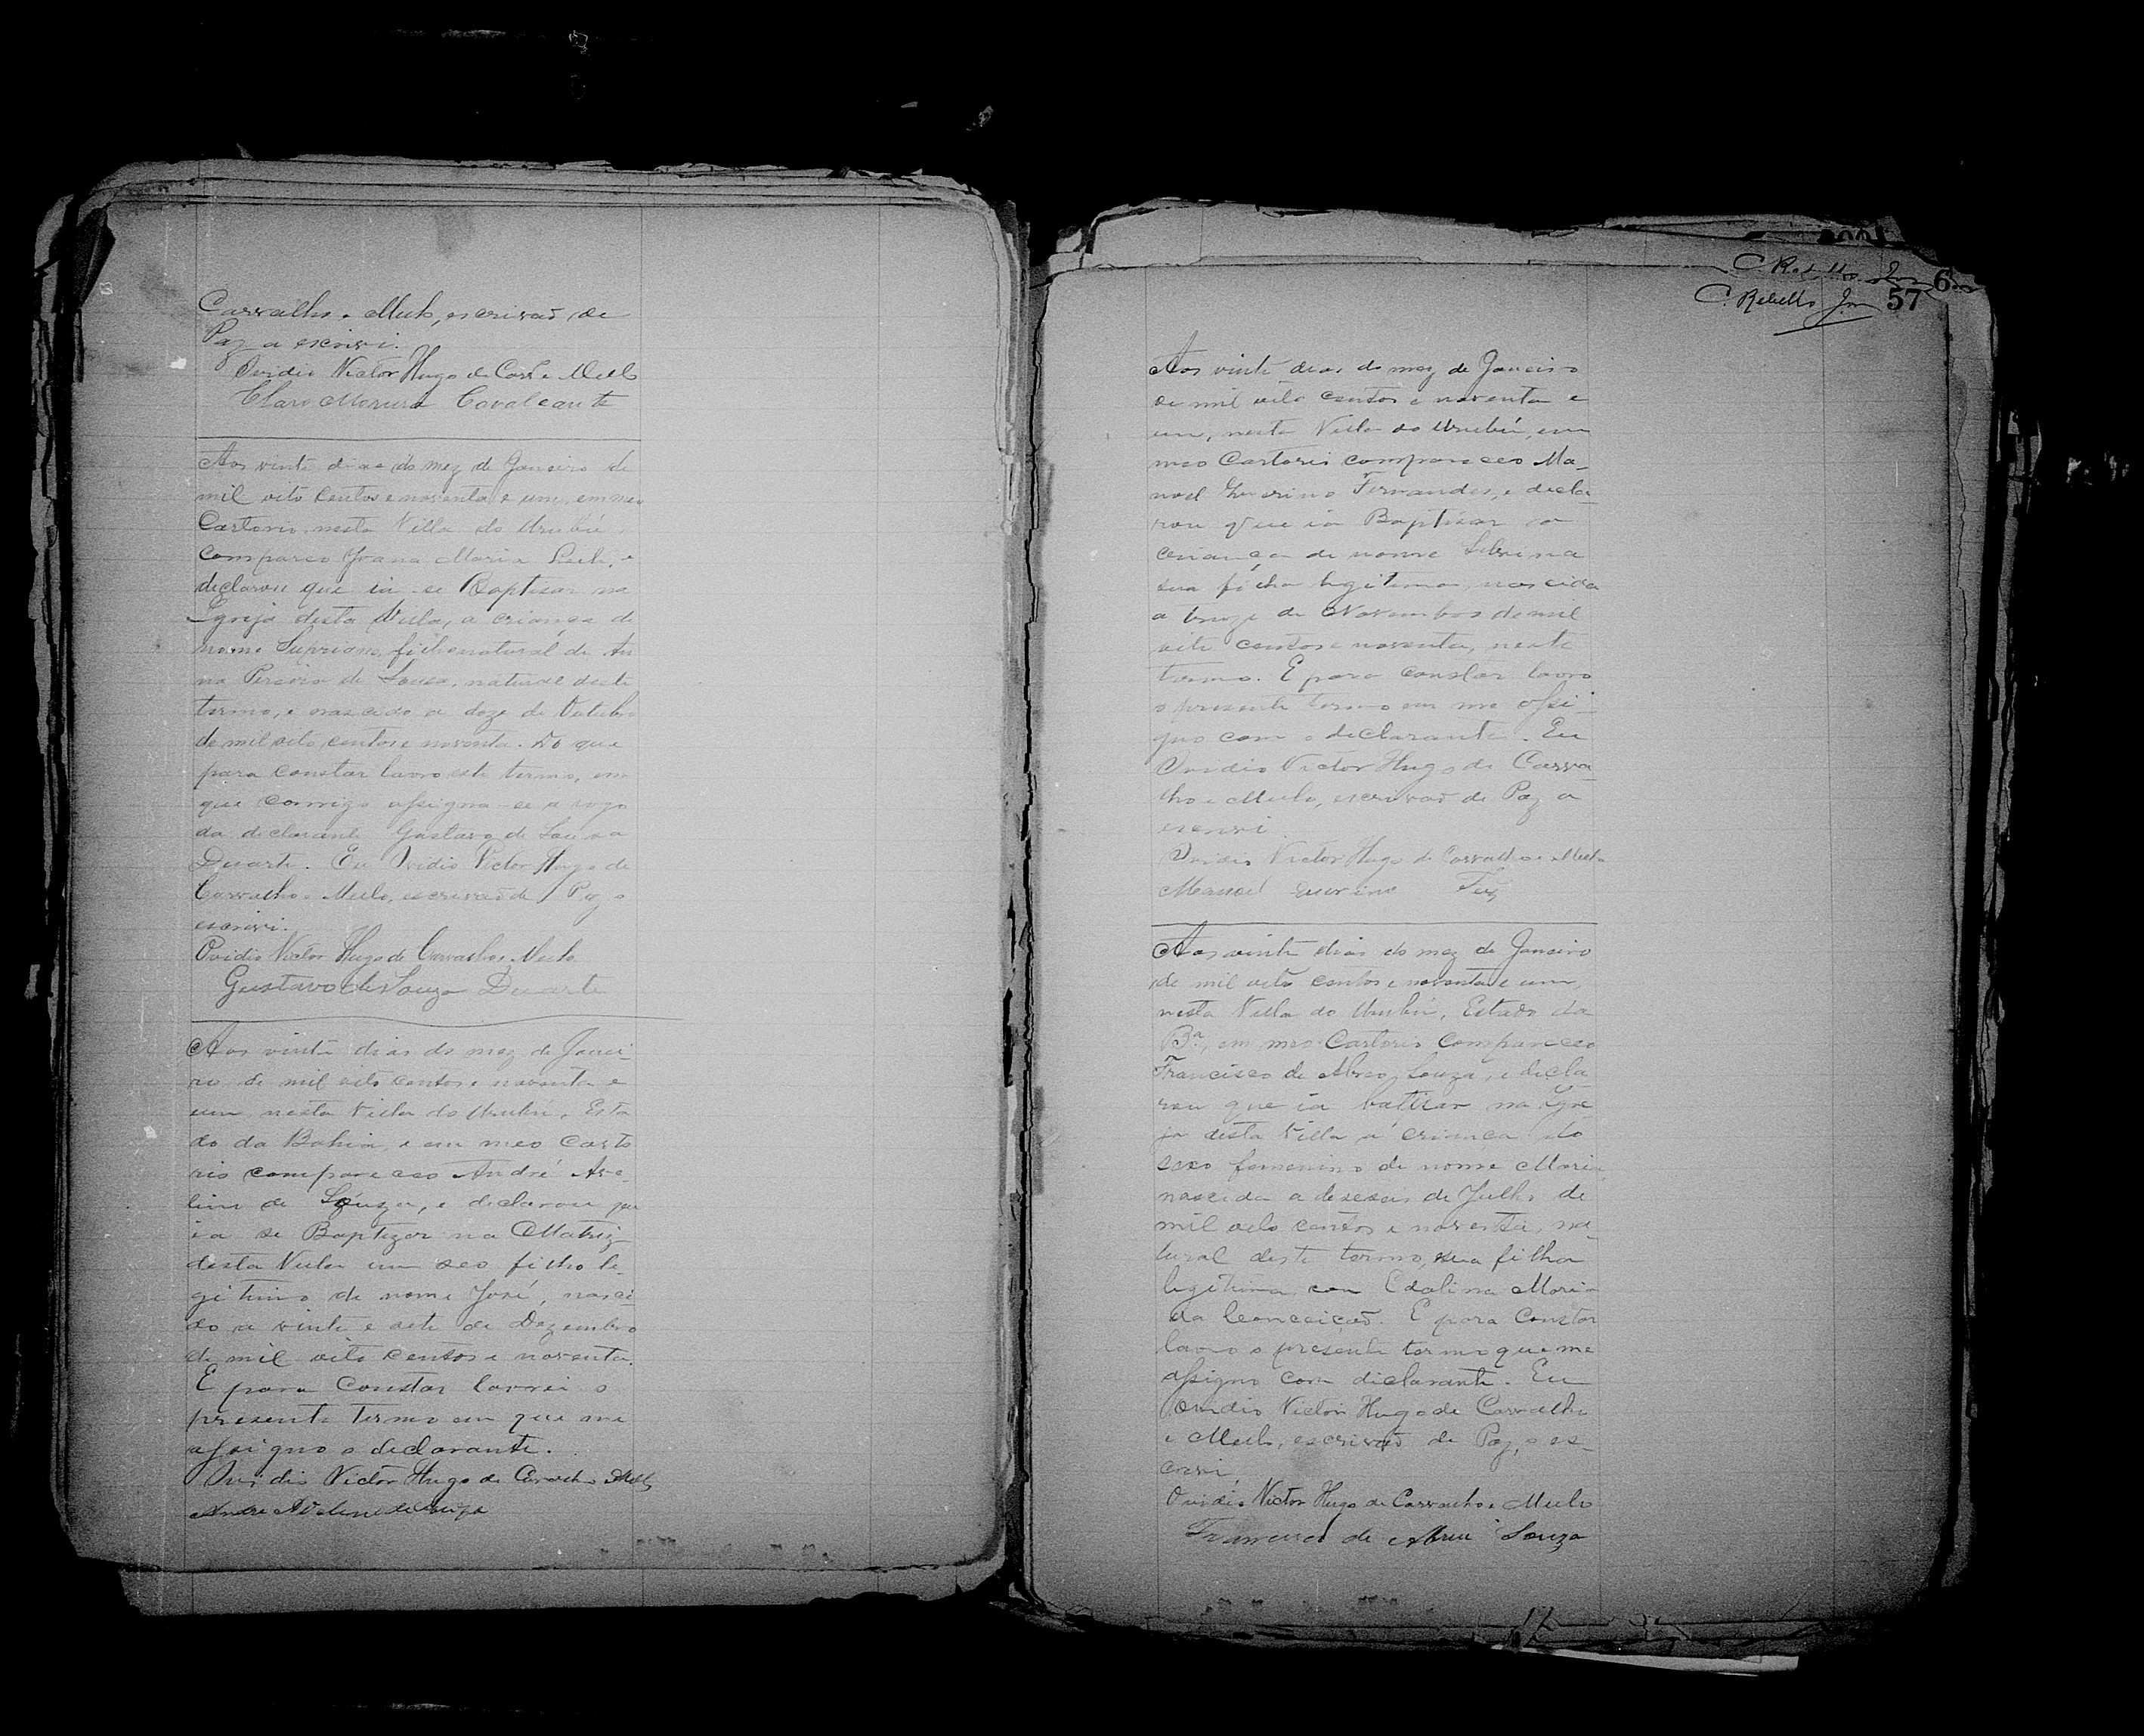 Carvalho e Mello, escrivaõ de
Paz a escrivi.
Ovidio Victor Hugo de Carº e Mello
Claro Moreira Cavalcante
Aos vinte dias do mez de Janeiro de
mil oito centos e noventa e um, em meo
Cartorio, nesta Villa do Urubú
compareo Joana Maria, e
declarou que ia se Baptisar na
Igreja desta Villa, a criança de
nome Cupriano, filho natural de An
na Pereira de Sousa, natural deste
termo, e nascido a doze de Outubro
de mil oito centos e noventa. Do que
para constar lavro este termo, em
que commigo assigna-se a rogo
da declarante Gustavo de Souza
Duarte. Eu Ovidio Victor Hugo de
Carvalho e Mello, escrivaõ de Paz o
escrivi.
Ovidio Victor Hugo de Carvalho e Mello
Gustavo de Souza Duarte
Aos vinte dias do mez de Janei-
ro de mil oito centos e noventa e
um, nesta Villa do Urubú, Esta
do da Bahia, e em meo Carto
rio compareceo André Ave-
lino de Souza, e declarou que
ia se Baptizar na Matriz
desta Villa um seo filho le-
gitimo de nome José, nasci-
do a vinte e sete de Dezembro
de mil oito centos e noventa.
E para constar lavrei o
presente termo em que me
assigno o declarante.
Ovidio Victor Hugo de Carvalho Mello
Andre Avelino de Souza
C. Rebello Jor 6
C. Rebello Jor 57
Aos vinte dias do mez de Janeiro
de mil oito centos e noventa e
um, nesta Villa do Urubú, em
meo Cartorio compareceo Ma-
noel Fernandes, e decla-
rou que ia Baptisar a
criança de nome
sua filha legitima, nascida
a treze de Novembro de mil
oito centos e noventa, neste
termo. E para constar lavro
o presente termo em me assi-
gno com o declarante. Eu
Ovidio Victor Hugo de Carva-
lho e Mello, escrivaõ de Paz a
escrivi.
Ovidio Victor Hugo de Carvalho e Mello
Manoel
Aos vinte dias do mez de Janeiro
de mil oito centos e noventa e um,
nesta Villa do Urubú, Estado da
Bª, em meo Cartorio compareceo
Francisco de Abreo Souza, e decla
rou que ia batisar na Igre
ja desta Villa a criança do
sexo femenino de nome Maria,
nascida a deseseis de Julho de
mil oito centos e noventa, na-
tural deste termo, sua filha
legitima com Edalina Maria
da Conceicaõ. E para constar
lavro o presente termo que me
assigno com declarante. Eu
Ovidio Victor Hugo de Carvalho
e Mello, escrivaõ de Paz, o es-
crevi,
Ovidio Victor Hugo de Carvalho e Mello
Francisco de Abreu Souza